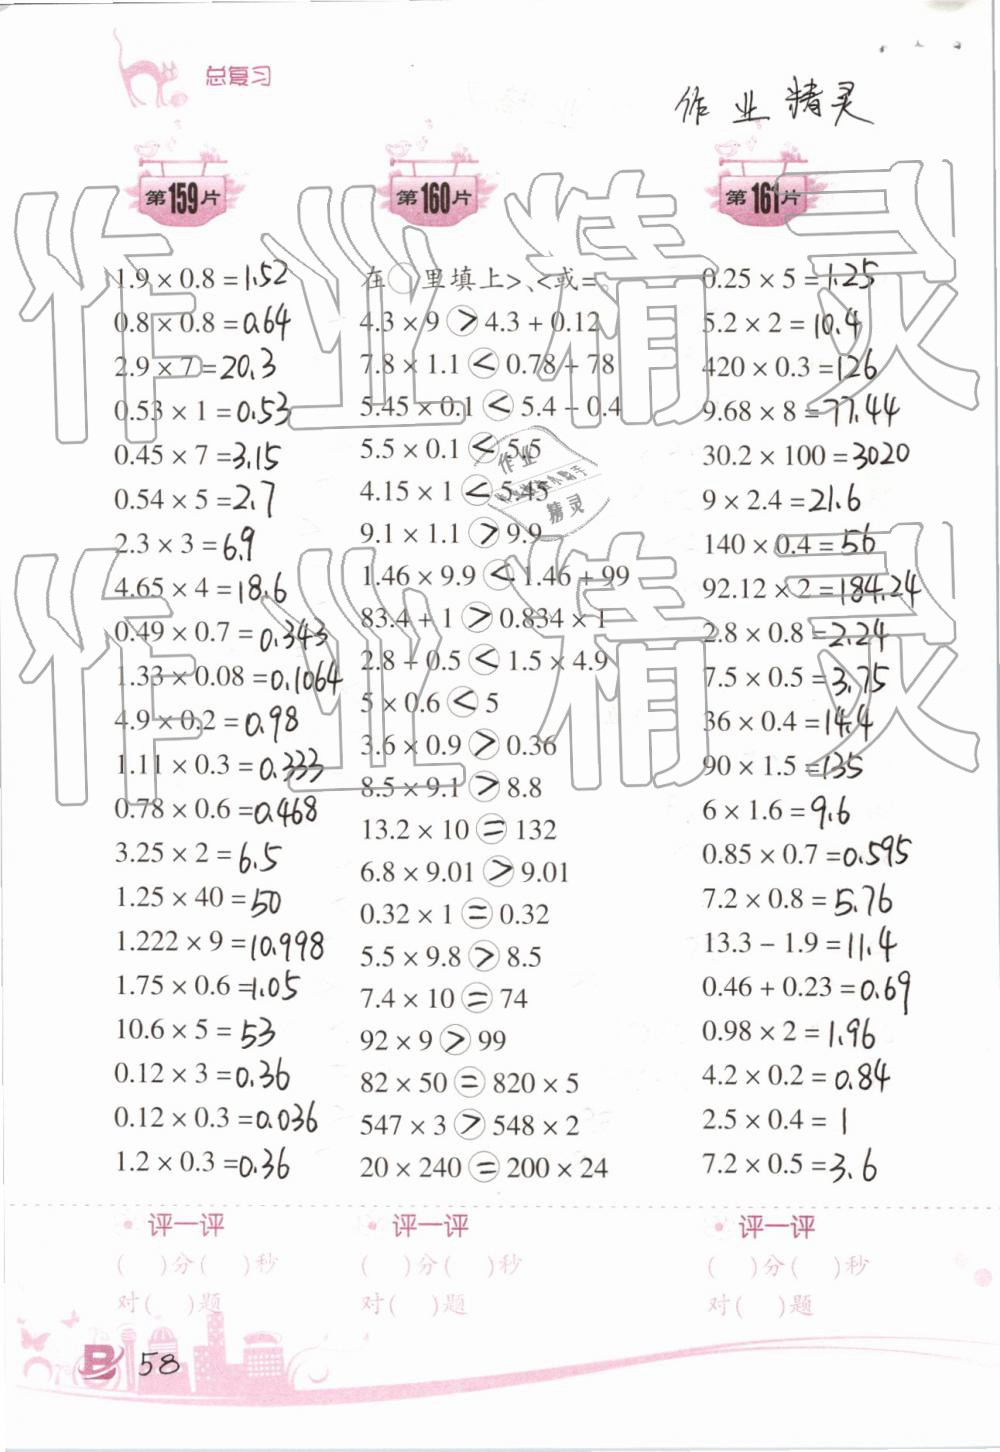 总复习
作业精灵
第159片
1.9 × 0.8 = 1.52
0.8 × 0.8 = 0.64
2.9 × 7 = 20.3
0.53 × 1 = 0.53
0.45 × 7 = 3.15
0.54 × 5 = 2.7
2.3 × 3 = 6.9
4.65 × 4 = 18.6
0.49 × 0.7 = 0.343
1.33 × 0.08 = 0.1064
4.9 × 0.2 = 0.98
1.11 × 0.3 = 0.333
0.78 × 0.6 = 0.468
3.25 × 2 = 6.5
1.25 × 40 = 50
1.222 × 9 = 10.998
1.75 × 0.6 = 1.05
10.6 × 5 = 53
0.12 × 3 = 0.36
0.12 × 0.3 = 0.036
1.2 × 0.3 = 0.36
评一评
( )分( )秒
对( )题
第160片
在○里填上>、<或=。
4.3 × 9 > 4.3 + 0.12
7.8 × 1.1 < 0.78 + 78
5.45 × 0.1 < 5.4 − 0.4
5.5 × 0.1 < 5.5
4.15 × 1 < 5.45
9.1 × 1.1 > 9.9
1.46 × 9.9 < 1.46 + 99
83.4 + 1 > 0.834 × 1
2.8 + 0.5 < 1.5 × 4.9
5 × 0.6 < 5
3.6 × 0.9 > 0.36
8.5 × 9.1 > 8.8
13.2 × 10 = 132
6.8 × 9.01 > 9.01
0.32 × 1 = 0.32
5.5 × 9.8 > 8.5
7.4 × 10 = 74
92 × 9 > 99
82 × 50 = 820 × 5
547 × 3 > 548 × 2
20 × 240 = 200 × 24
评一评
( )分( )秒
对( )题
第161片
0.25 × 5 = 1.25
5.2 × 2 = 10.4
420 × 0.3 = 126
9.68 × 8 = 77.44
30.2 × 100 = 3020
9 × 2.4 = 21.6
140 × 0.4 = 56
92.12 × 2 = 184.24
2.8 × 0.8 = 2.24
7.5 × 0.5 = 3.75
36 × 0.4 = 14.4
90 × 1.5 = 135
6 × 1.6 = 9.6
0.85 × 0.7 = 0.595
7.2 × 0.8 = 5.76
13.3 − 1.9 = 11.4
0.46 + 0.23 = 0.69
0.98 × 2 = 1.96
4.2 × 0.2 = 0.84
2.5 × 0.4 = 1
7.2 × 0.5 = 3.6
评一评
( )分( )秒
对( )题
作业精灵
作业精灵
作业
精灵
B 58